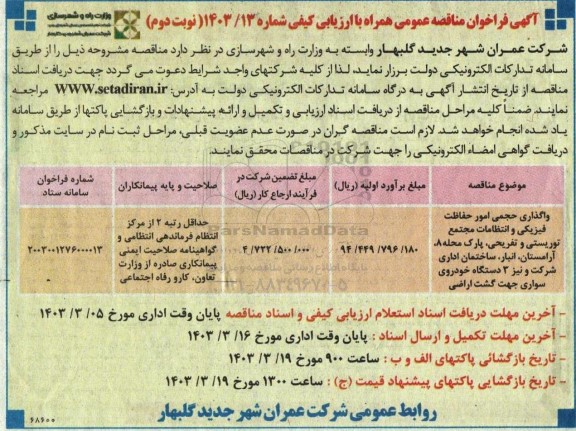 وزارت راه و شهرسازی
آگهی فراخوان مناقصه عمومی همراه با ارزیابی کیفی شماره ۱۳ /۱۴۰۳ (نوبت دوم)
شرکت عمران شهر جدید گلبهار وابسته به وزارت راه و شهرسازی در نظر دارد مناقصه مشروحه ذیل را از طریق
سامانه تدارکات الکترونیکی دولت برزار نماید، لذا از کلیه شرکتهای واجد شرایط دعوت می گردد جهت دریافت اسناد
مناقصه از تاریخ انتشار آگهی به درگاه سامانه تدارکات الکترونیکی دولت به آدرس: WWW.setadiran.ir مراجعه
نمایند. ضمناً کلیه مراحل مناقصه از دریافت اسناد ارزیابی و تکمیل و ارائه پیشنهادات و بازگشایی پاکتها از طریق سامانه
یاد شده انجام خواهد شد. لازم است مناقصه گران در صورت عدم عضویت قبلی، مراحل ثبت نام در سایت مذکور و
دریافت گواهی امضاء الکترونیکی را جهت شرکت در مناقصات محقق نمایند.
موضوع مناقصه
مبلغ برآورد اولیه (ریال)
مبلغ تضمین شرکت در
فرآیند ارجاع کار (ریال)
صلاحیت و پایه پیمانکاران
شماره فراخوان
سامانه ستاد
واگذاری حجمی امور حفاظت
فیزیکی و انتظامات مجتمع
توریستی و تفریحی، پارک محله ۸،
آرامستان، انبار، ساختمان اداری
شرکت و نیز ۳ دستگاه خودروی
سواری جهت گشت اراضی
۹۴/۴۴۹/۷۹۶/۱۸۰
۴/۷۲۲/۵۰۰/۰۰۰
حداقل رتبه ۲ از مرکز
انتظام فرماندهی انتظامی و
گواهینامه صلاحیت ایمنی
پیمانکاری صادره از وزارت
تعاون، کار و رفاه اجتماعی
۲۰۰۳۰۰۱۲۷۶۰۰۰۰۱۳
ParsNamadData
پایگاه اطلاع رسانی مناقصه و مزایده
۰۲۱-۸۸۳۴۹۶۷۰-۵
- آخرین مهلت دریافت اسناد استعلام ارزیابی کیفی و اسناد مناقصه پایان وقت اداری مورخ ۰۵ /۳ /۱۴۰۳
- آخرین مهلت تکمیل و ارسال اسناد : پایان وقت اداری مورخ ۱۶ /۳ /۱۴۰۳
- تاریخ بازگشائی پاکتهای الف و ب : ساعت ۹۰۰ مورخ ۱۹ /۳ /۱۴۰۳
- تاریخ بازگشایی پاکتهای پیشنهاد قیمت (ج) : ساعت ۱۳۰۰ مورخ ۱۹ /۳ /۱۴۰۳
روابط عمومی شرکت عمران شهر جدید گلبهار
۶۸۶۰۰